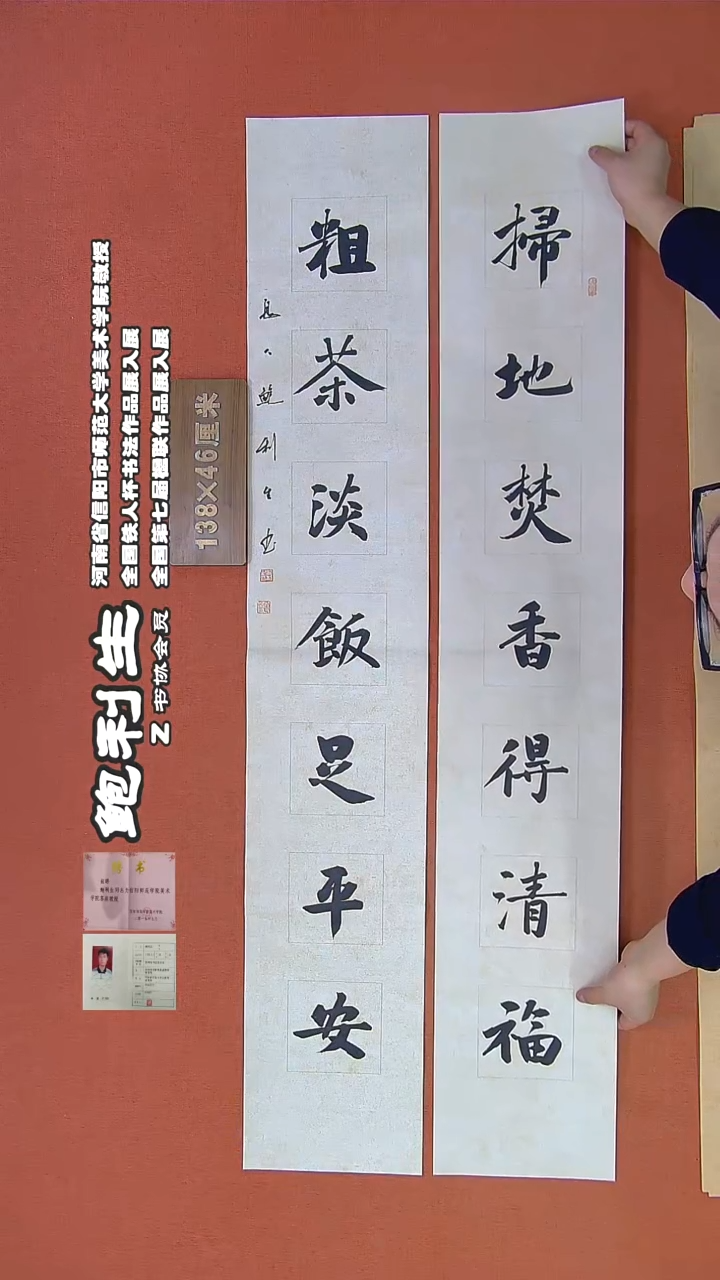 掃地焚香得清福
粗茶淡飯足平安
鲍利生
138×46厘米
河南省信阳市师范大学美术学院教授
全国铁人杯书法作品展入展
全国第七届楹联作品展入展
鲍利生
Z 书协会员
聘书